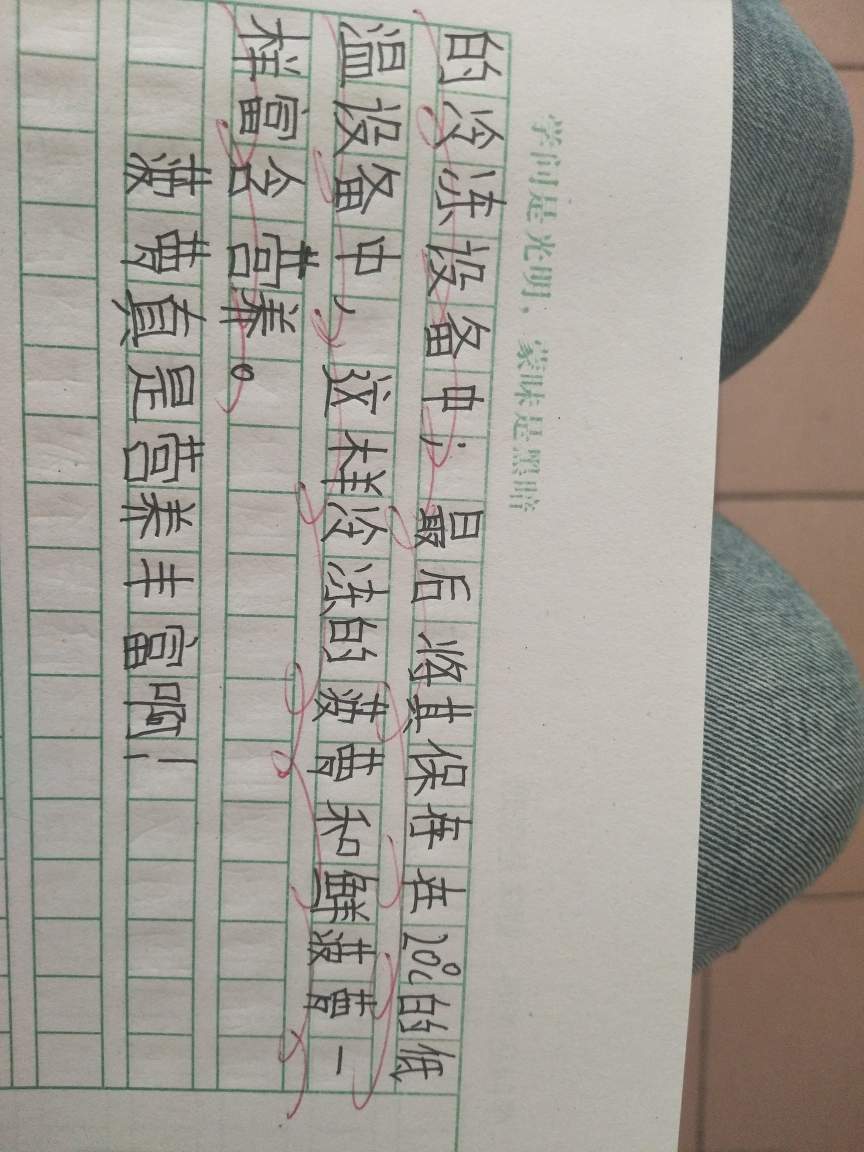 学问是光明，蒙昧是黑暗
的冷冻设备中；最后将其保存在20℃的低
温设备中，这样冷冻的菠萝和鲜菠萝一
样富含营养。
菠萝真是营养丰富啊！